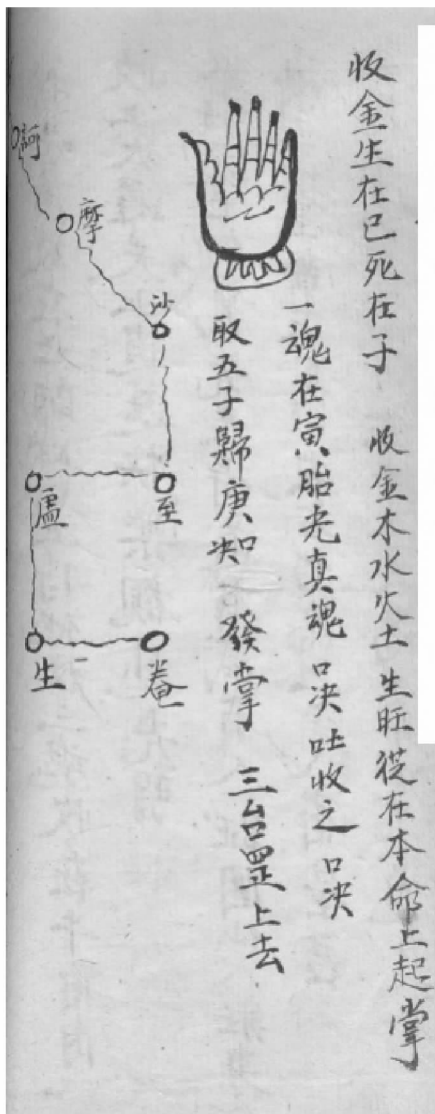 收金生在巳死在子　收金木水火土生旺從在本命上起掌
一魂在寅胎光真魂口决吐收之口决
取五子歸庚知　發掌　三台罡上去
訶
摩
沙
至
廬
生